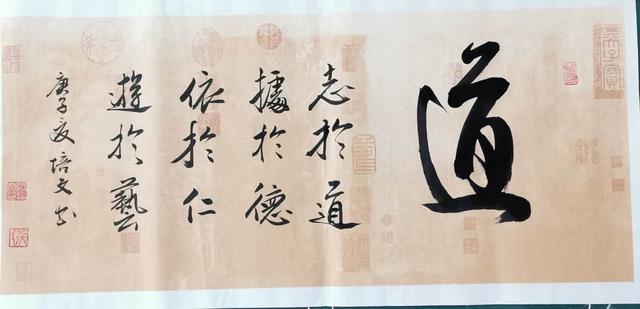 道
志於道
據於德
依於仁
遊於藝
庚子夏培文书